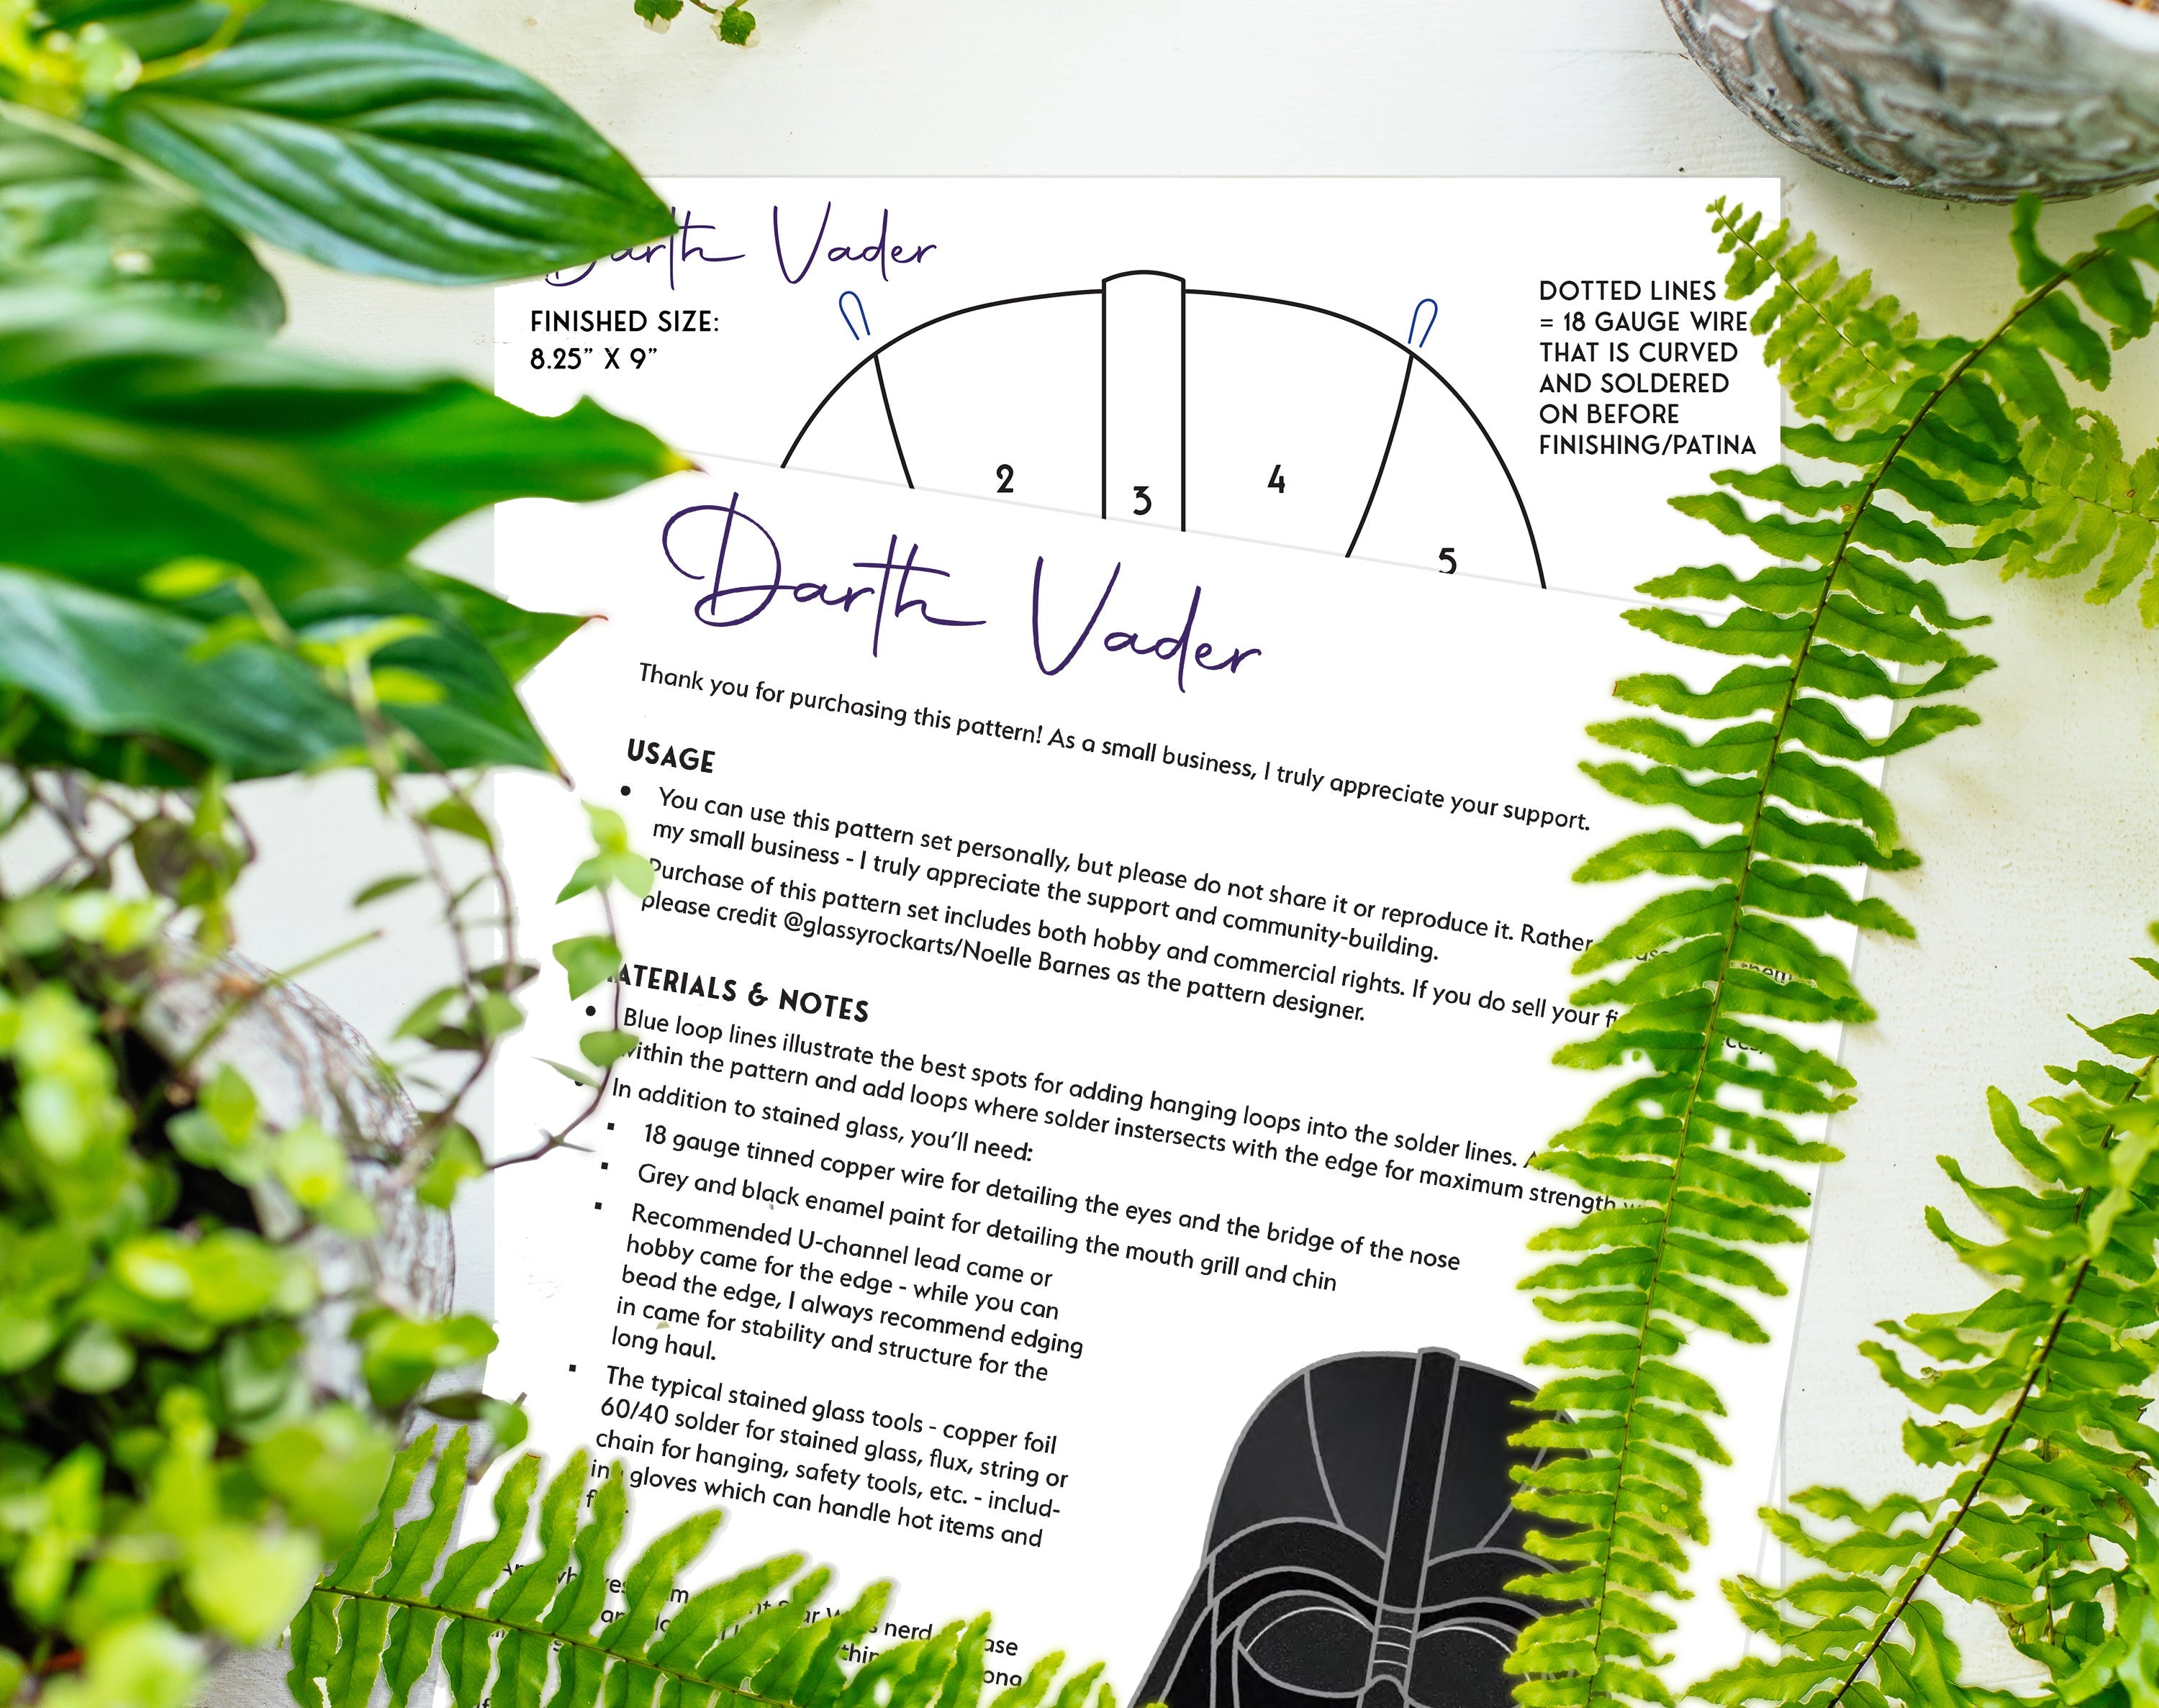 Darth Vader
FINISHED SIZE:
8.25” X 9”
DOTTED LINES
= 18 GAUGE WIRE
THAT IS CURVED
AND SOLDERED
ON BEFORE
FINISHING/PATINA
2
3
4
5
Darth Vader
Thank you for purchasing this pattern! As a small business, I truly appreciate your support.
USAGE
• You can use this pattern set personally, but please do not share it or reproduce it. Rather
my small business - I truly appreciate the support and community-building.
Purchase of this pattern set includes both hobby and commercial rights. If you do sell your
please credit @glassyrockarts/Noelle Barnes as the pattern designer.
MATERIALS & NOTES
• Blue loop lines illustrate the best spots for adding hanging loops into the solder lines.
within the pattern and add loops where solder instersects with the edge for maximum strength
• In addition to stained glass, you’ll need:
▪ 18 gauge tinned copper wire for detailing the eyes and the bridge of the nose
▪ Grey and black enamel paint for detailing the mouth grill and chin
▪ Recommended U-channel lead came or
hobby came for the edge - while you can
bead the edge, I always recommend edging
in came for stability and structure for the
long haul.
▪ The typical stained glass tools - copper foil
60/40 solder for stained glass, flux, string or
chain for hanging, safety tools, etc. - includ-
ing gloves which can handle hot items and
nerd